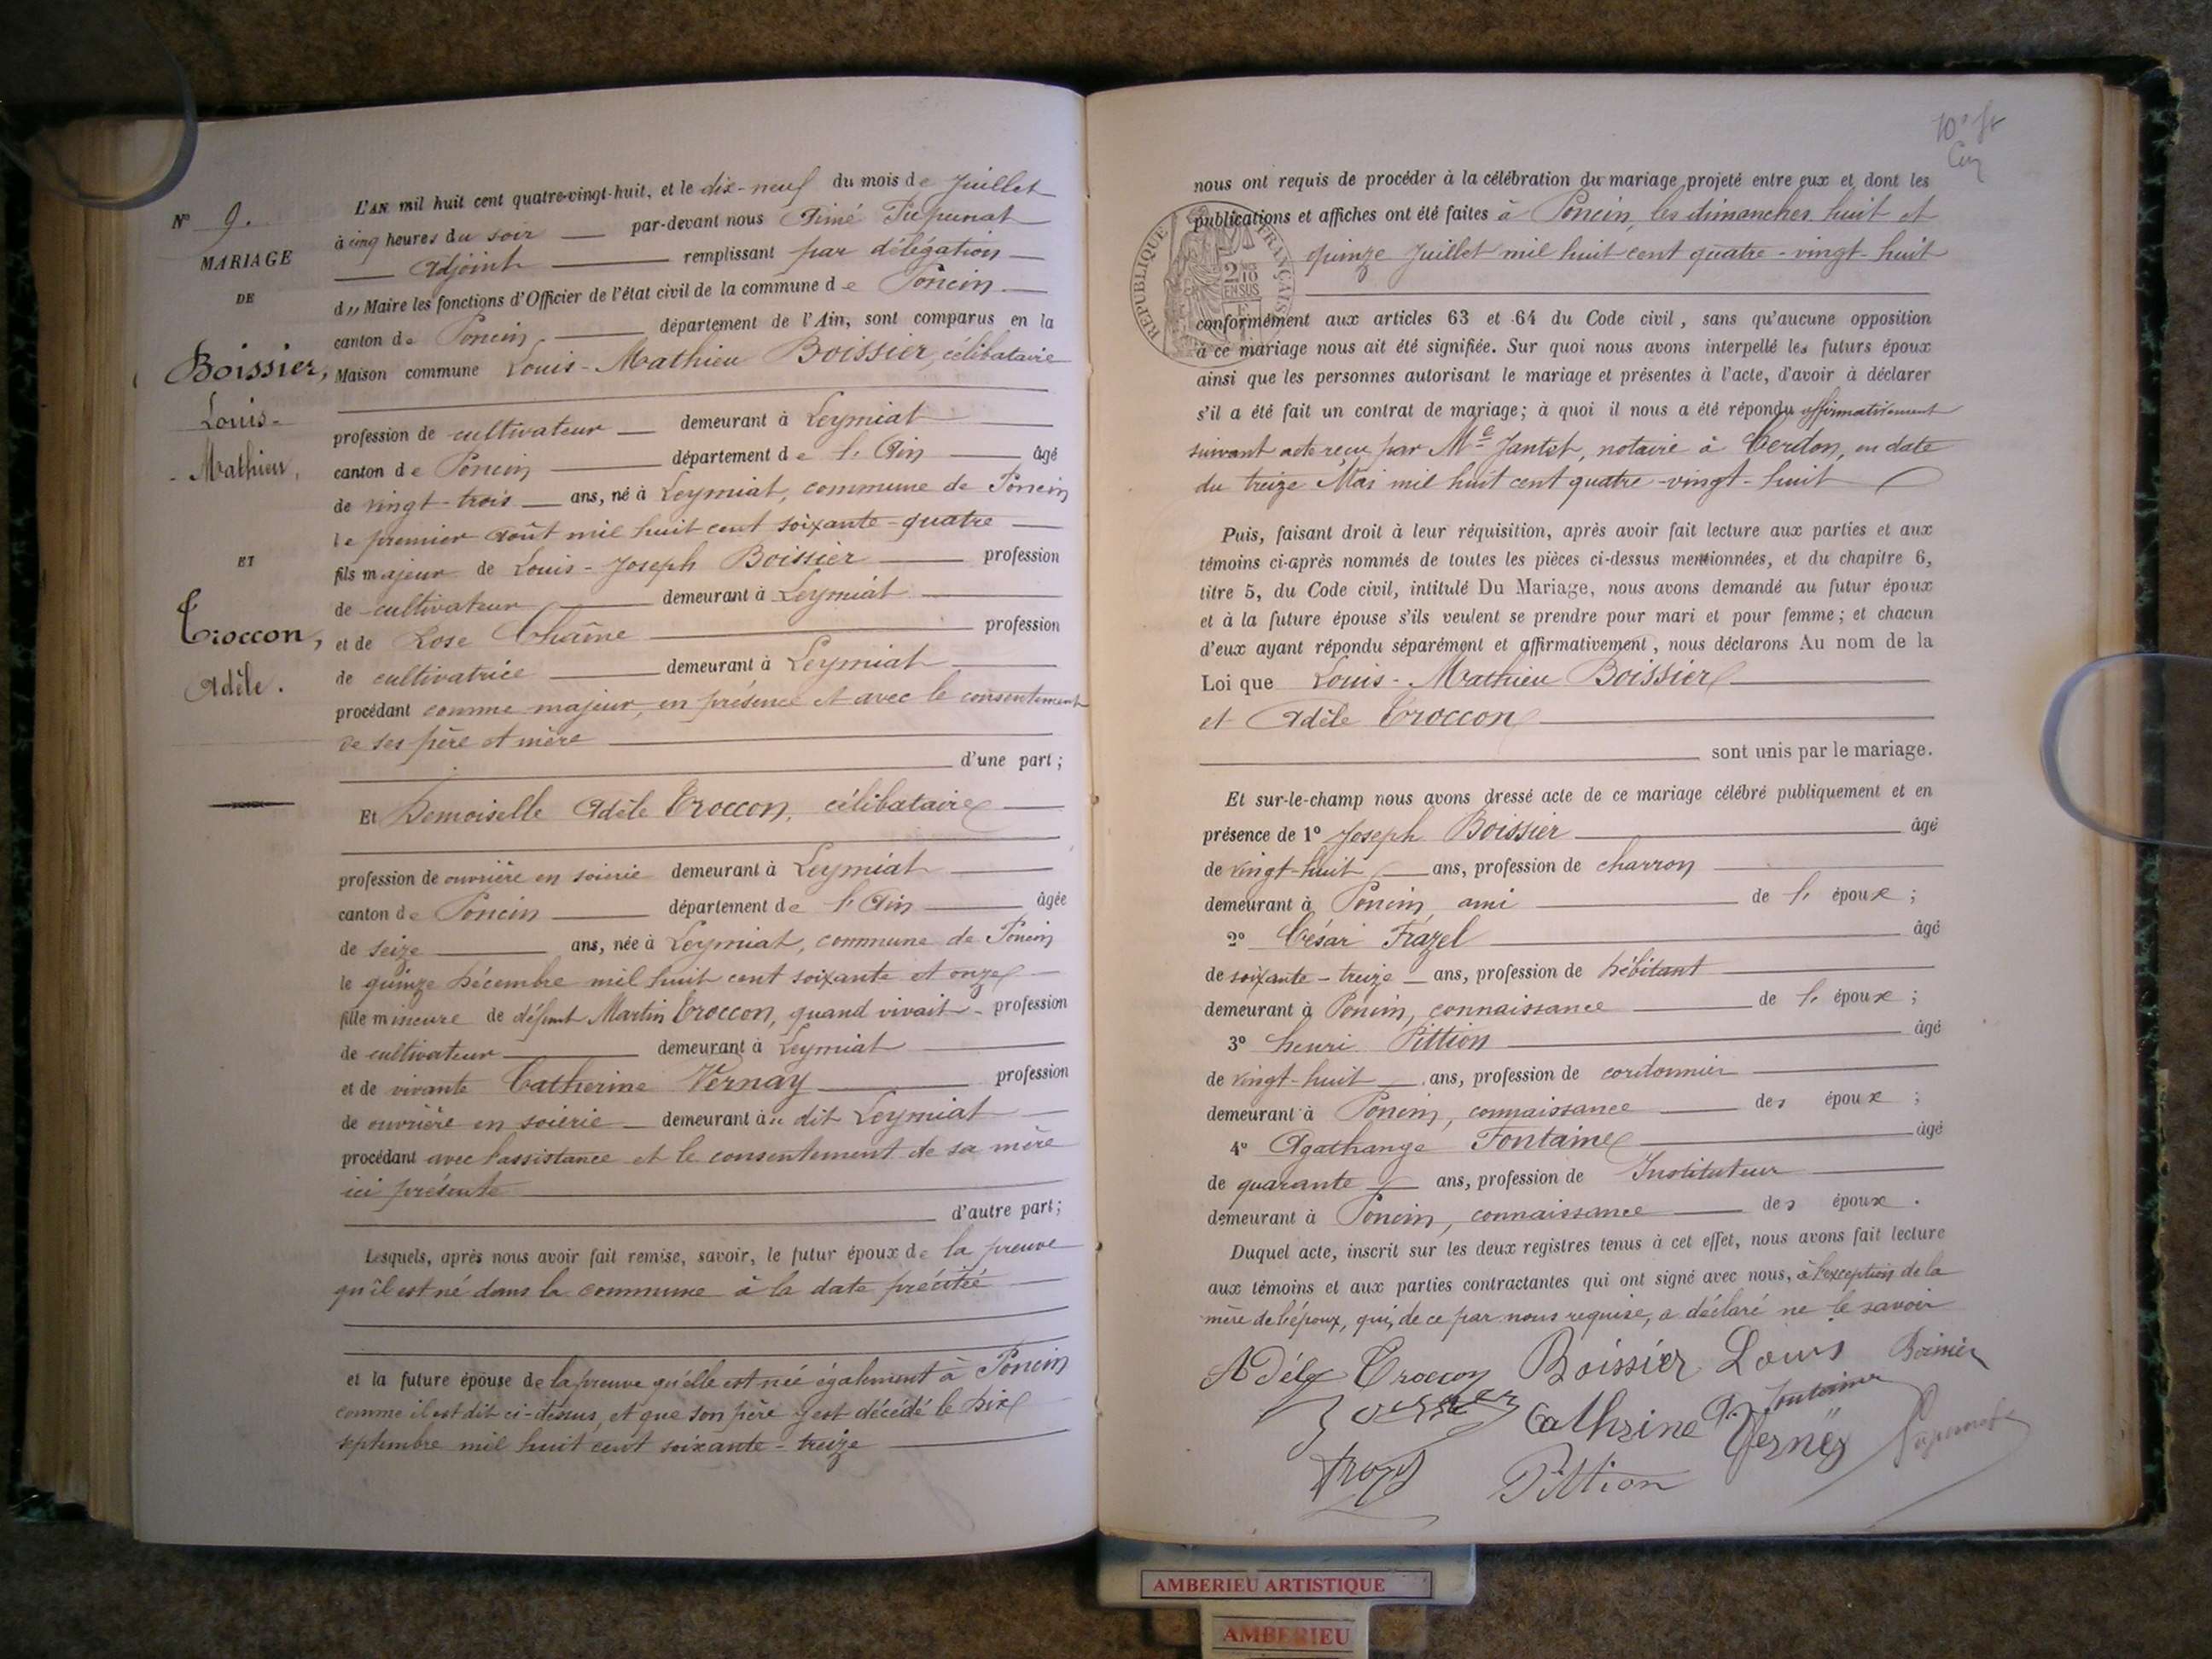 N° 9.
MARIAGE
DE
Boissier,
Louis-
Mathieu,
ET
Troccon,
Adèle.
L'AN mil huit cent quatre-vingt-huit, et le dix-neuf du mois de Juillet
à cinq heures du soir par-devant nous Aimé Pupunat
Adjoint remplissant par délégation
d,, Maire les fonctions d'Officier de l'état civil de la commune de Poncin
canton de Poncin, département de l'Ain, sont comparus en la
Maison commune Louis-Mathieu Boissier, célibataire
profession de cultivateur demeurant à Leymiat
canton de Poncin département de l'Ain âgé
de vingt-trois ans, né à Leymiat, commune de Poncin
le premier Août mil huit cent soixante-quatre
fils majeur de Louis-Joseph Boissier profession
de cultivateur demeurant à Leymiat
et de Rose Chaîne profession
de cultivatrice demeurant à Leymiat
procédant comme majeur, en présence et avec le consentement
de ses père et mère
d'une part;
Et Demoiselle Adèle Troccon, célibataire
profession de ouvrière en soierie demeurant à Leymiat
canton de Poncin département de l'Ain âgée
de seize ans, née à Leymiat, commune de Poncin
le quinze Décembre mil huit cent soixante et onze
fille mineure de défunt Martin Troccon, quand vivait profession
de cultivateur demeurant à Leymiat
et de vivante Catherine Vernay profession
de ouvrière en soierie demeurant au dit Leymiat
procédant avec l'assistance et le consentement de sa mère
ici présente
d'autre part;
Lesquels, après nous avoir fait remise, savoir, le futur époux de la preuve
qu'il est né dans la commune à la date précitée
et la future épouse de la preuve qu'elle est née également à Poncin
comme il est dit ci-dessus, et que son père y est décédé le dix
septembre mil huit cent soixante-treize
nous ont requis de procéder à la célébration du mariage projeté entre eux et dont les
publications et affiches ont été faites à Poncin, les dimanches huit et
quinze Juillet mil huit cent quatre-vingt-huit
RÉPUBLIQUE FRANÇAISE
2/10
EN SUS
conformément aux articles 63 et 64 du Code civil, sans qu'aucune opposition
à ce mariage nous ait été signifiée. Sur quoi nous avons interpellé les futurs époux
ainsi que les personnes autorisant le mariage et présentes à l'acte, d'avoir à déclarer
s'il a été fait un contrat de mariage; à quoi il nous a été répondu affirmativement
suivant acte reçu par Me Jantet, notaire à Cerdon, en date
du treize Mai mil huit cent quatre-vingt-huit
Puis, faisant droit à leur réquisition, après avoir fait lecture aux parties et aux
témoins ci-après nommés de toutes les pièces ci-dessus mentionnées, et du chapitre 6,
titre 5, du Code civil, intitulé Du Mariage, nous avons demandé au futur époux
et à la future épouse s'ils veulent se prendre pour mari et pour femme; et chacun
d'eux ayant répondu séparément et affirmativement, nous déclarons Au nom de la
Loi que Louis-Mathieu Boissier
et Adèle Troccon
sont unis par le mariage.
Et sur-le-champ nous avons dressé acte de ce mariage célébré publiquement et en
présence de 1° Joseph Boissier âgé
de vingt-huit ans, profession de charron
demeurant à Poncin, ami de l'époux;
2° César Frazel âgé
de soixante-treize ans, profession de débitant
demeurant à Poncin, connaissance de l'époux;
3° henri Pittion âgé
de vingt-huit ans, profession de cordonnier
demeurant à Poncin, connaissance des époux;
4° Agathange Fontaine âgé
de quarante ans, profession de Instituteur
demeurant à Poncin, connaissance des époux.
Duquel acte, inscrit sur les deux registres tenus à cet effet, nous avons fait lecture
aux témoins et aux parties contractantes qui ont signé avec nous, à l'exception de la
mère de l'époux, qui, de ce par nous requise, a déclaré ne le savoir
Adèle Troccon Boissier Louis Boissier
Cathrine A. Fontaine
Verney
Pittion
AMBERIEU ARTISTIQUE
AMBERIEU